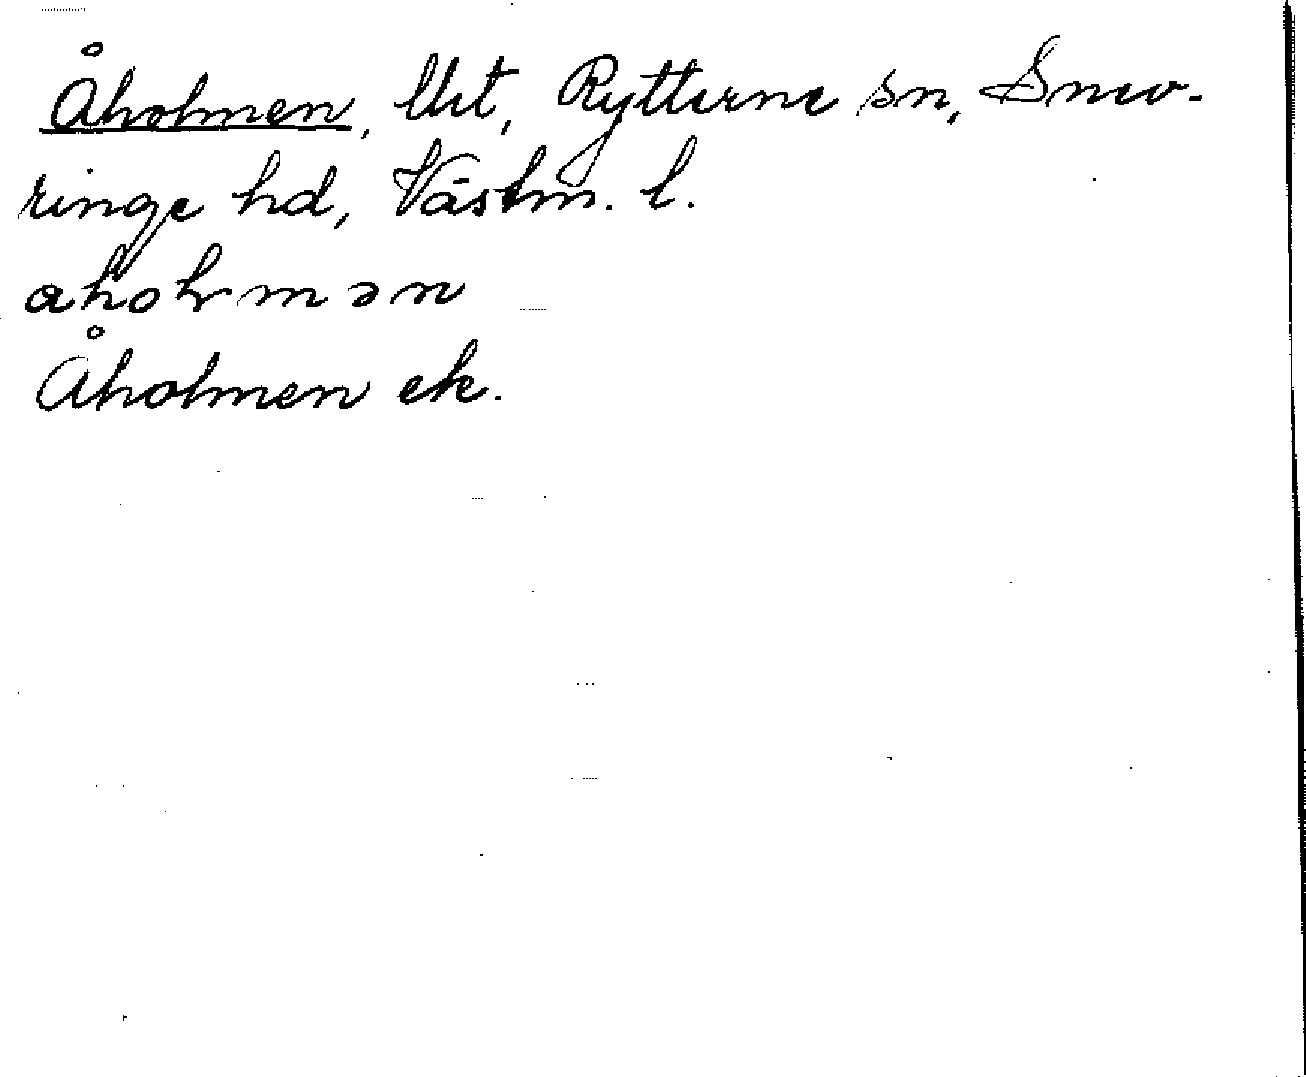 Åholmen, Rytterne sn, Snev-
ringe hd, Västm. l.
aholmən
Åholmen ek.